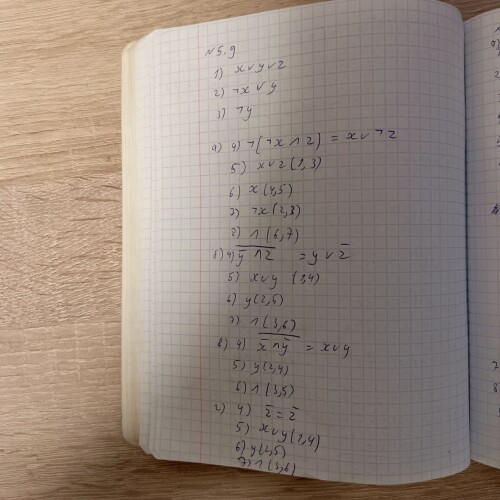 №5.9
1) x∨y∨z
2) ¬x∨y
3) ¬y
а) 4) ¬(¬x∧z) = x∨¬z
5) x∨z(1,3)
6) x(4,5)
7) ¬x(2,3)
8) ∧(6,7)
б) 4) y̅∧z̅ = y∨z̅
5) x∨y (1,4)
6) y(2,5)
7) ∧(3,6)
в) 4) x̅∧y̅ = x∨y
5) y(2,4)
6) ∧(3,5)
г) 4) z̅ = z̅
5) x∨y(1,4)
6) y(2,5)
7) ∧(3,6)